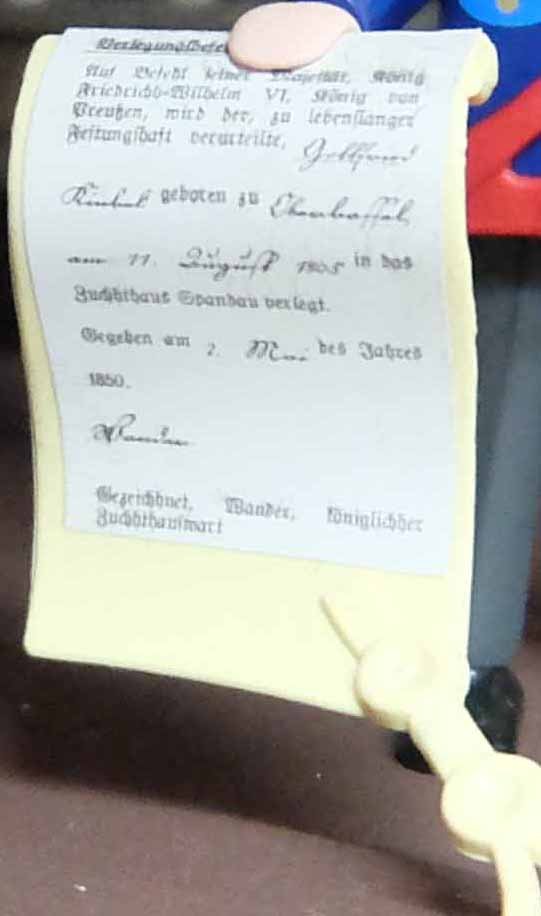 Verlegungsbefe
Auf Befehl seiner Majestät, König
Friedrich-Wilhelm VI, König von
Preußen, wird der, zu lebenslanger
Festungshaft verurteilte, Gottfried
Kinkel geboren zu Oberkassel,
am 11. August 1805 in das
Zuchthaus Spandau verlegt.
Gegeben am 2. Mai des Jahres
1850.
Wander
Gezeichnet, Wander, königlicher
Zuchthauswart